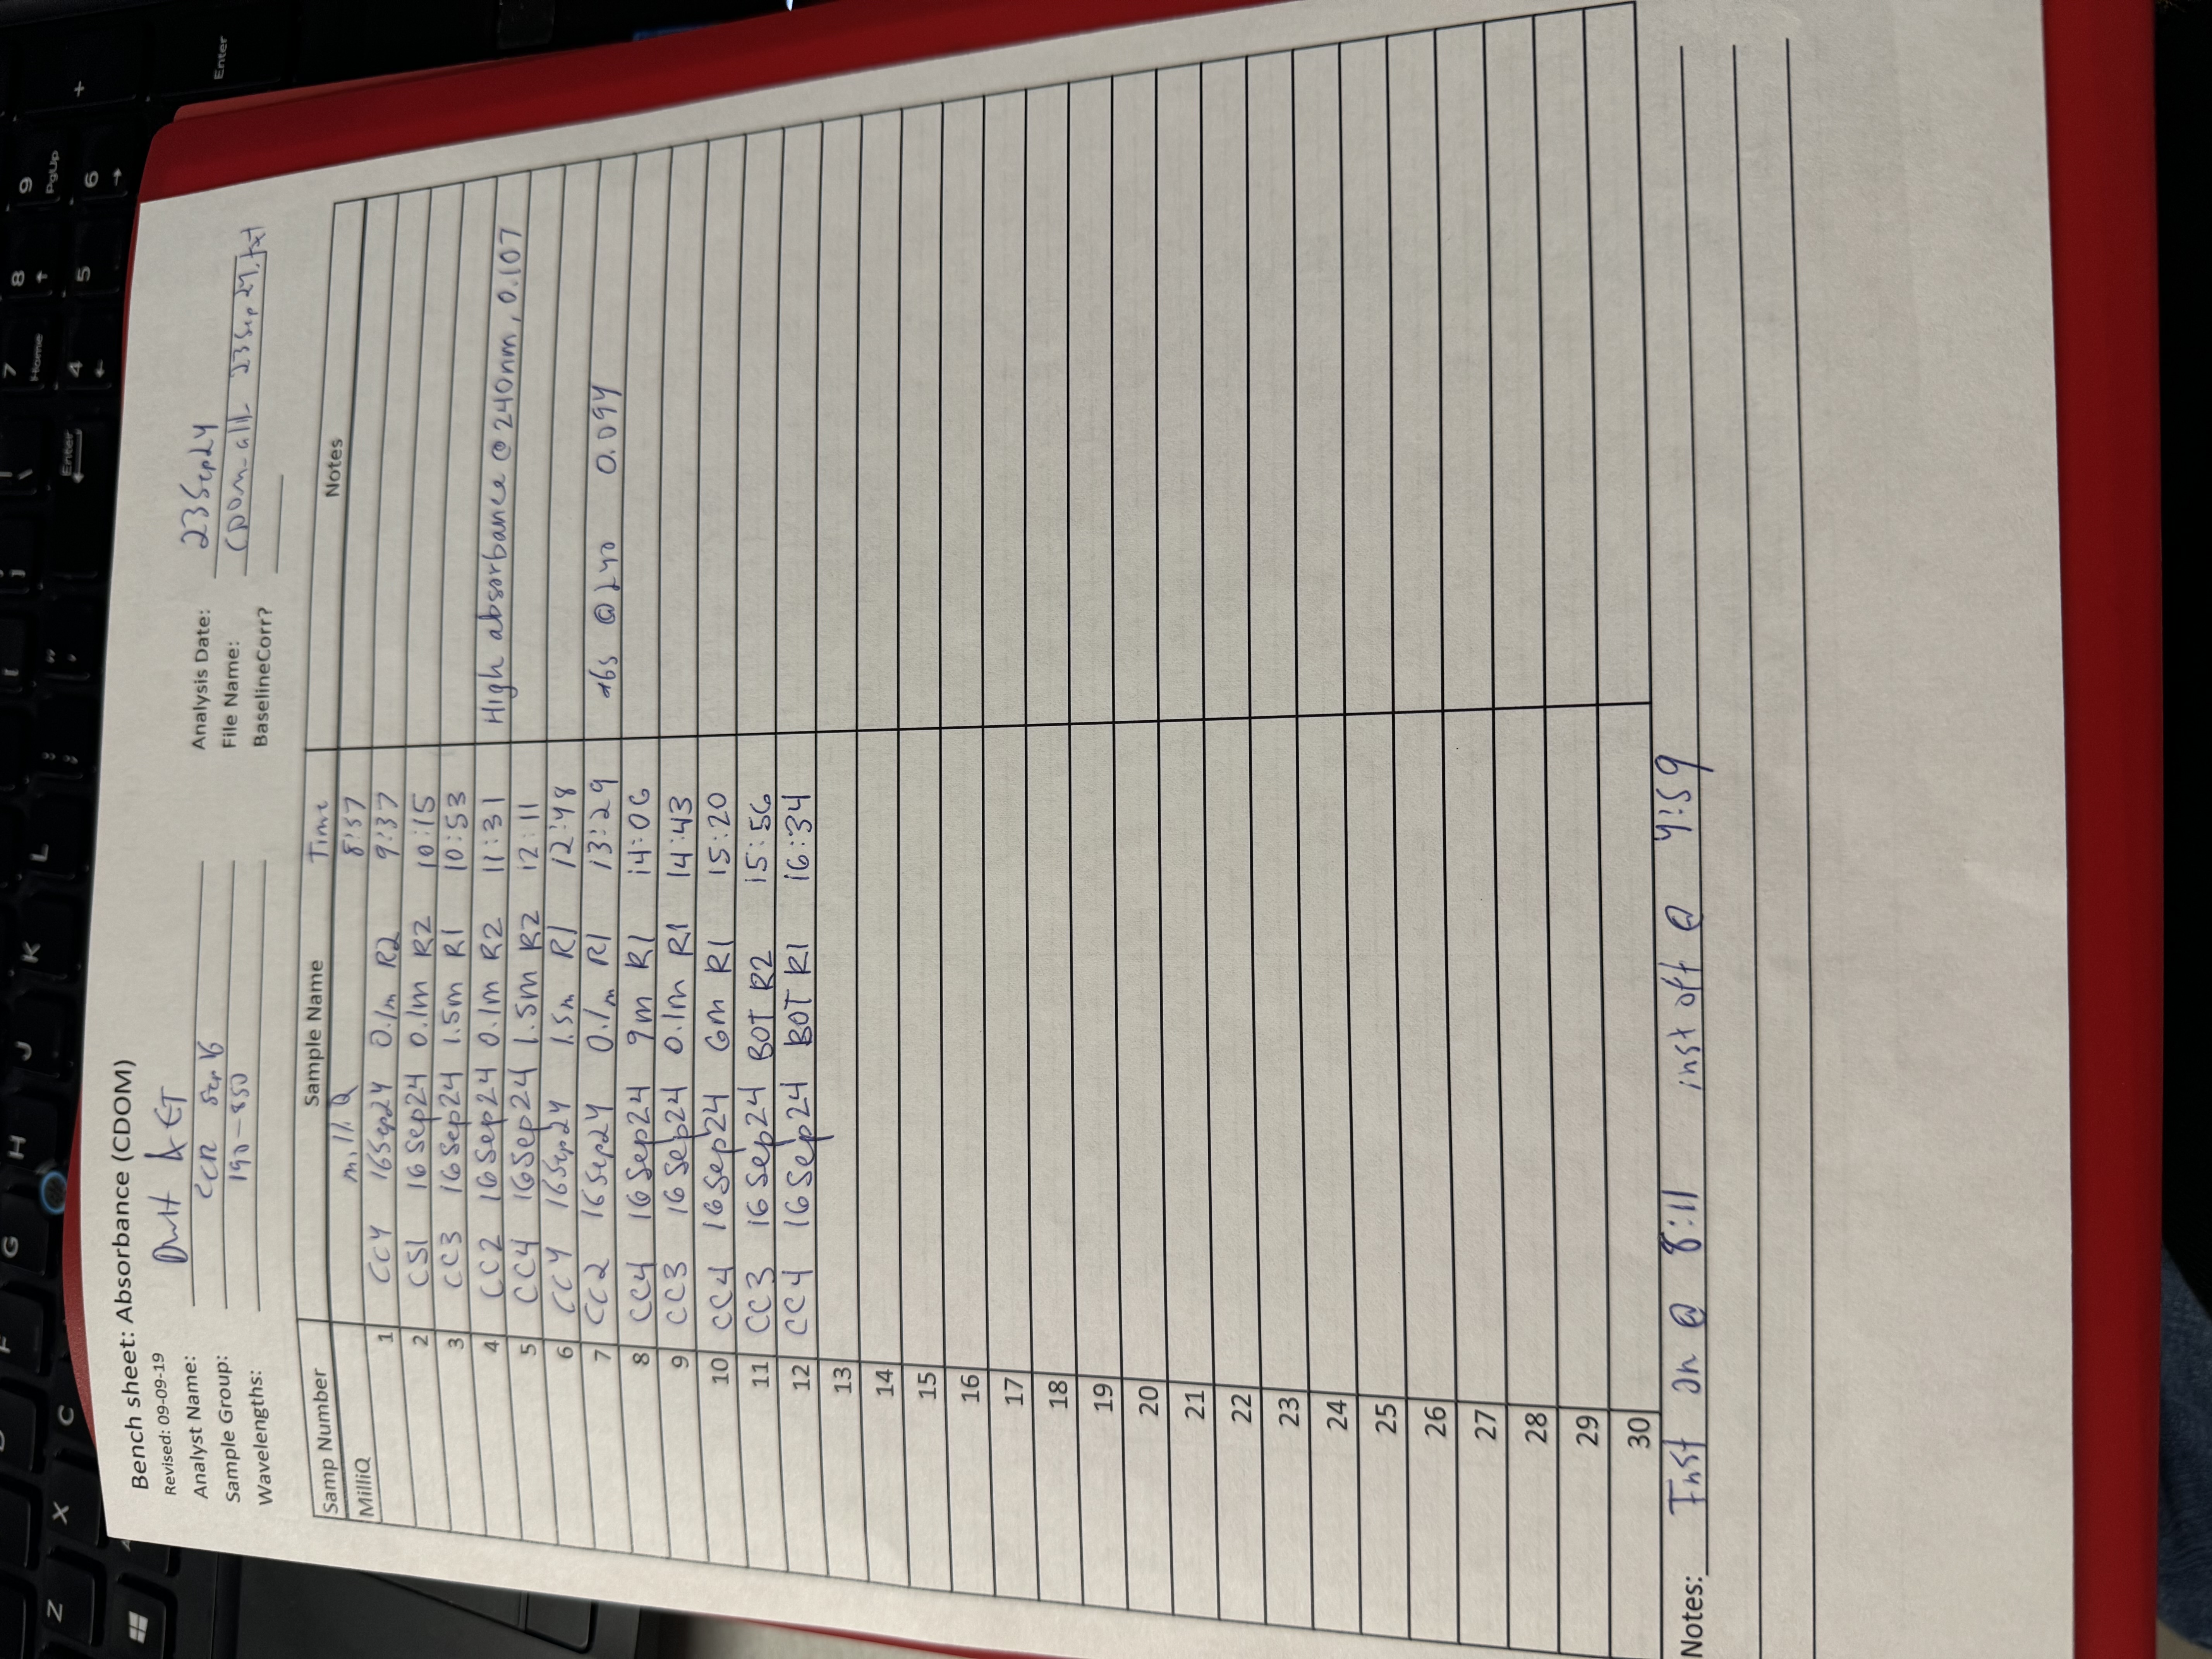 Bench sheet: Absorbance (CDOM)
Revised: 09-09-19
Analyst Name: DWH & ET
Sample Group: CCR Sep 16
Wavelengths: 190-850
Analysis Date: 23Sep24
File Name: 23Sep24.txt
BaselineCorr?
Samp Number Sample Name Time Notes
MilliQ milli Q 8:57
1 CC4 16Sep24 0.1m R2 9:37
2 CS1 16Sep24 0.1m R2 10:15
3 CC3 16Sep24 1.5m R1 10:53
4 CC2 16Sep24 0.1m R2 11:31 High absorbance @ 240nm, 0.107
5 CC4 16Sep24 1.5m R2 12:11
6 CC4 16Sep24 1.5m R1 12:48
7 CC2 16Sep24 0.1m R1 13:29 abs @ 240 0.094
8 CC4 16Sep24 9m R1 14:06
9 CC3 16Sep24 0.1m R1 14:43
10 CC4 16Sep24 6m R1 15:20
11 CC3 16Sep24 BOT R2 15:56
12 CC4 16Sep24 BOT R1 16:34
13
14
15
16
17
18
19
20
21
22
23
24
25
26
27
28
29
30
Notes: Inst on @ 8:11 inst off @ 4:59